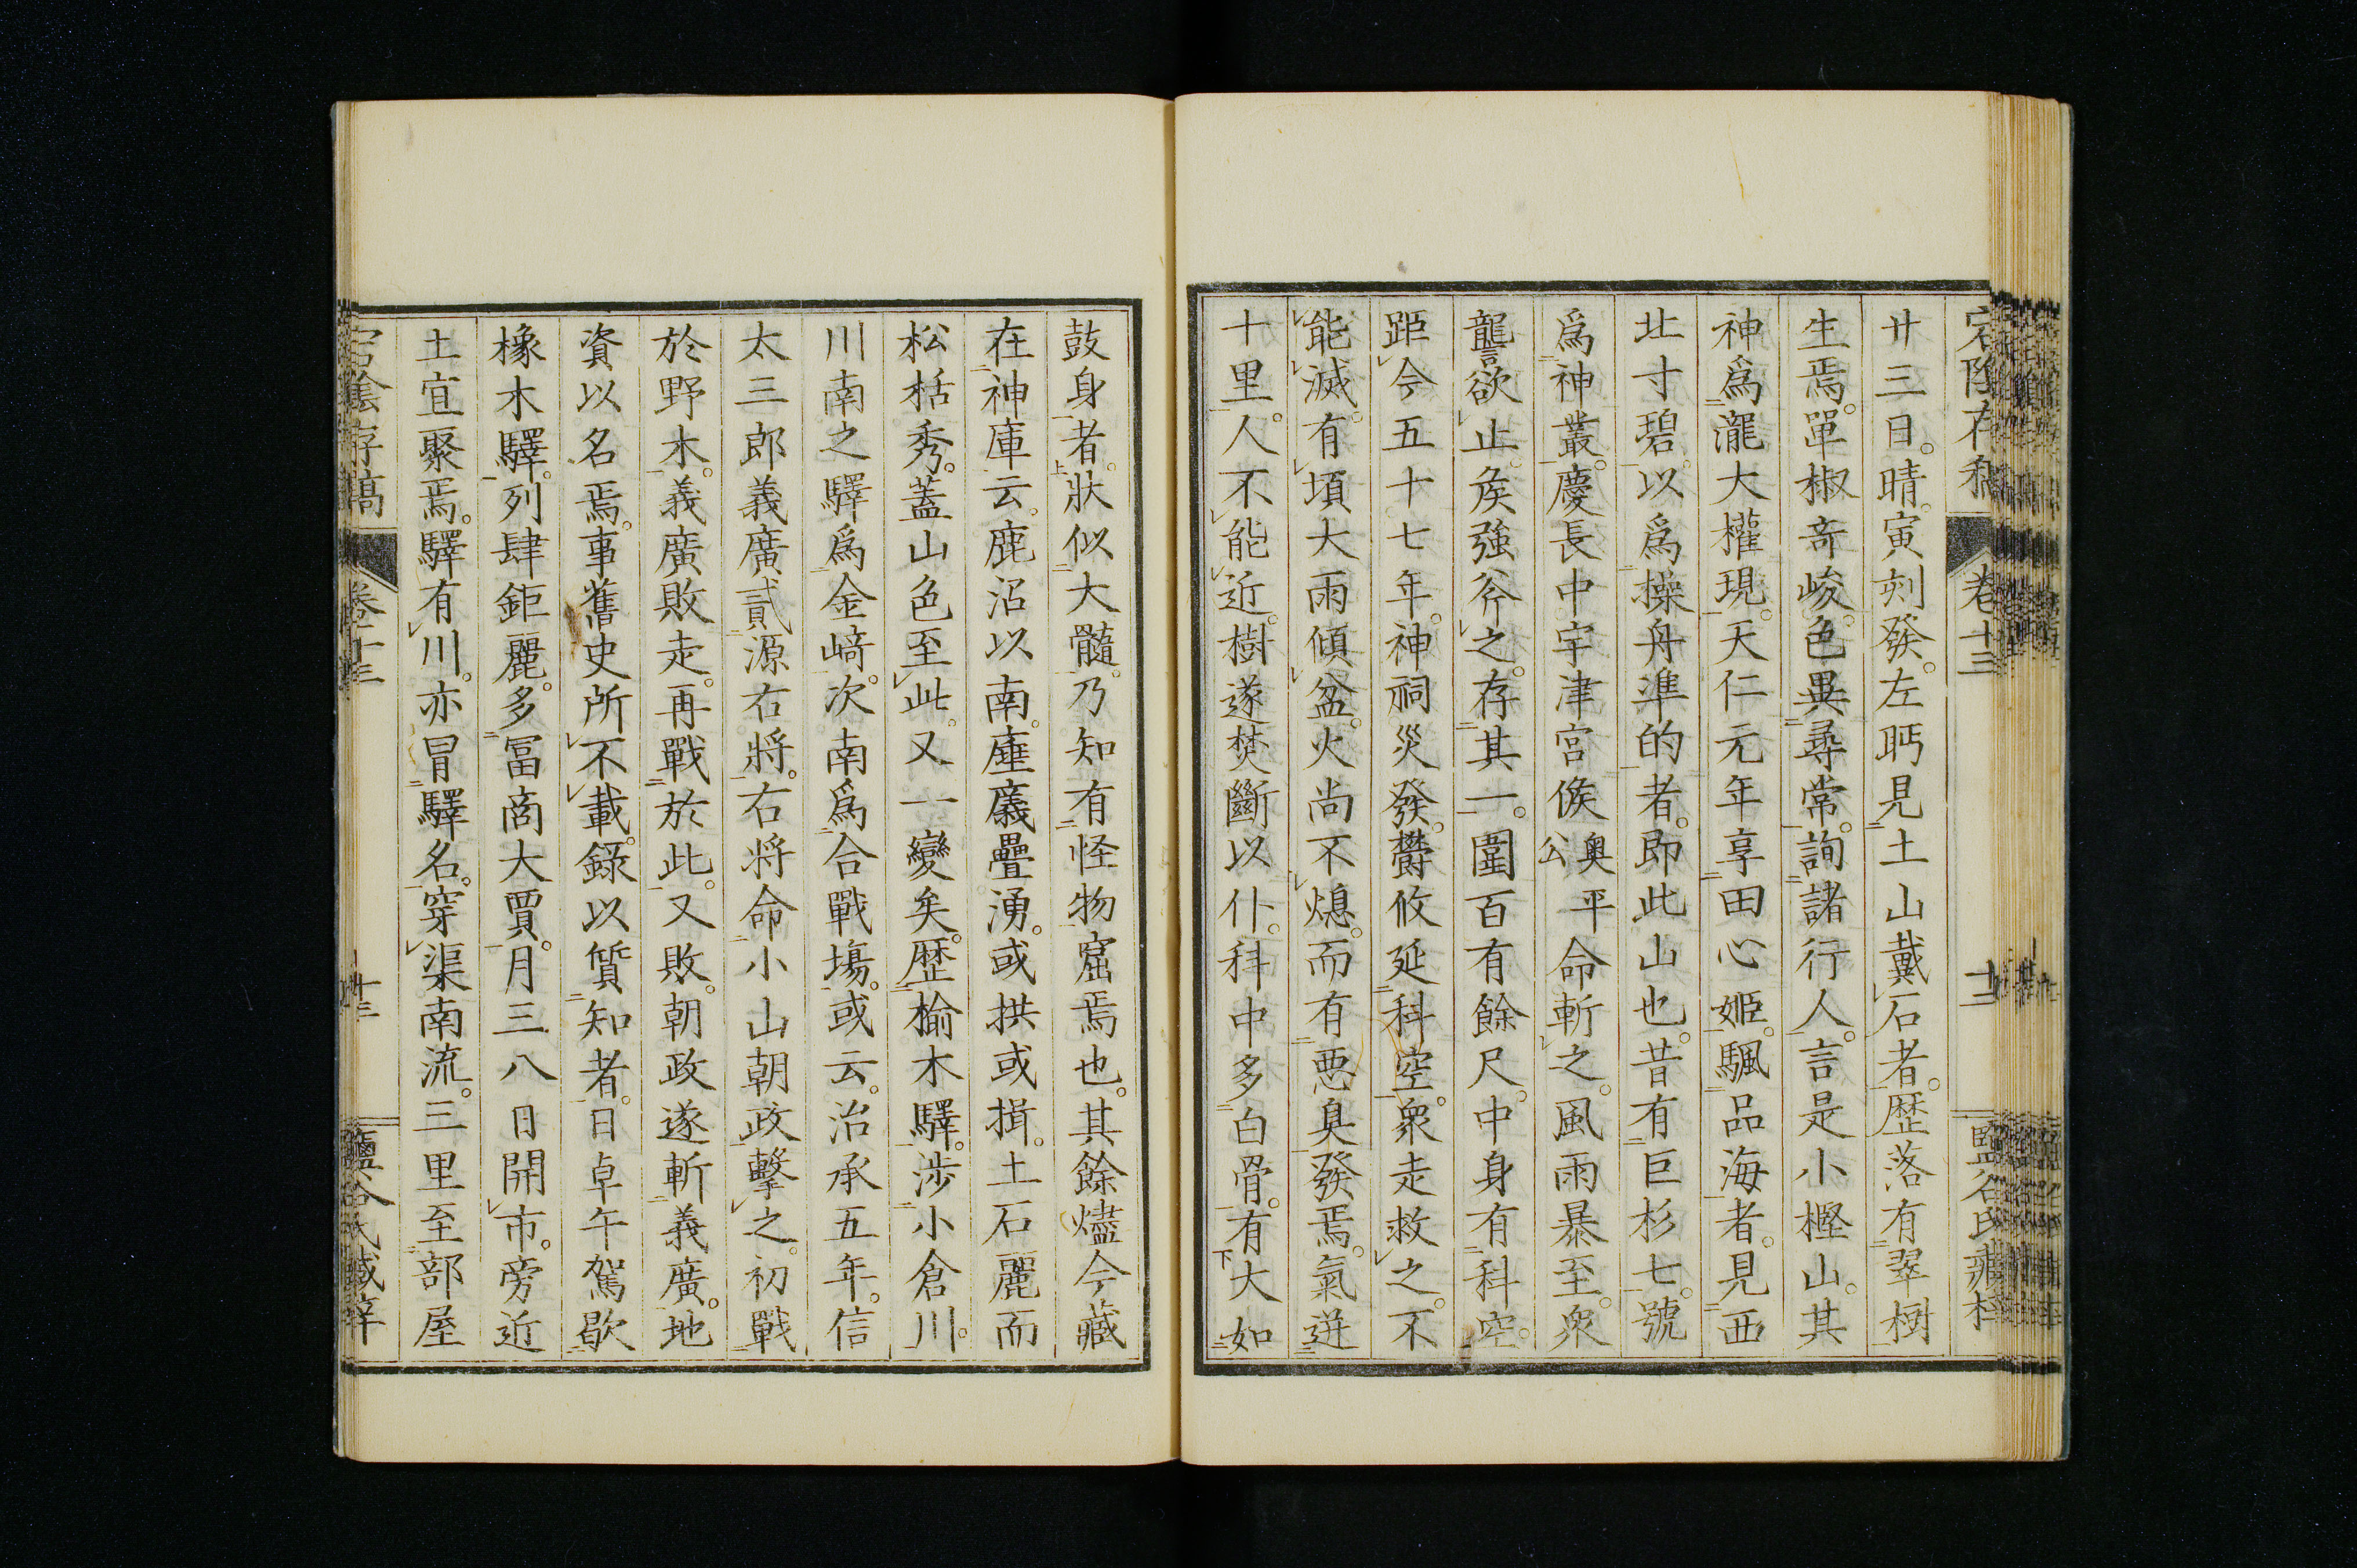 卷十三
十二
廿三日。晴。寅刻發。左眄見土山戴石者。歴落有翠樹
生焉。單椒奇峻。色異尋常。詢諸行人。言是小樫山。其
神爲瀧大權現。天仁元年享田心姬。颿品海者。見西
北寸碧。以爲操舟準的者。即此山也。昔有巨杉七。號
爲神叢。慶長中宇津宮侯奥平公命斬之。風雨暴至。衆
讋欲止。矦強斧之。存其一。圍百有餘尺。中身有科空。
距今五十七年。神祠災發。欎攸延科空。衆走救之。不
能滅。有頃大雨傾盆。火尚不熄。而有悪臭發焉。氣迸
十里。人不能近。樹遂焚斷以仆。科中多白骨。有大如
鼓身者。狀似大髓。乃知有怪物窟焉也。其餘燼今藏
在神庫云。鹿沼以南。塵嶬疊湧。或拱或揖。土石麗而
松栝秀。蓋山色至此。又一變矣。歴楡木驛。渉小倉川。
川南之驛爲金﨑。次南爲合戰塲。或云。治承五年。信
太三郎義廣貳源右將。右将命小山朝政擊之。初戰
於野木。義廣敗走。再戰於此。又敗。朝政遂斬義廣。地
資以名焉。事舊史所不載。錄以質知者。日卓午駕歇
橡木驛。列肆鉅麗。多冨商大賈。月三八日開市。旁近
土宜聚焉。驛有川。亦冒驛名。穿渠南流。三里至部屋
宕陰存稿
卷十三
十三
鹽谷氏藏梓